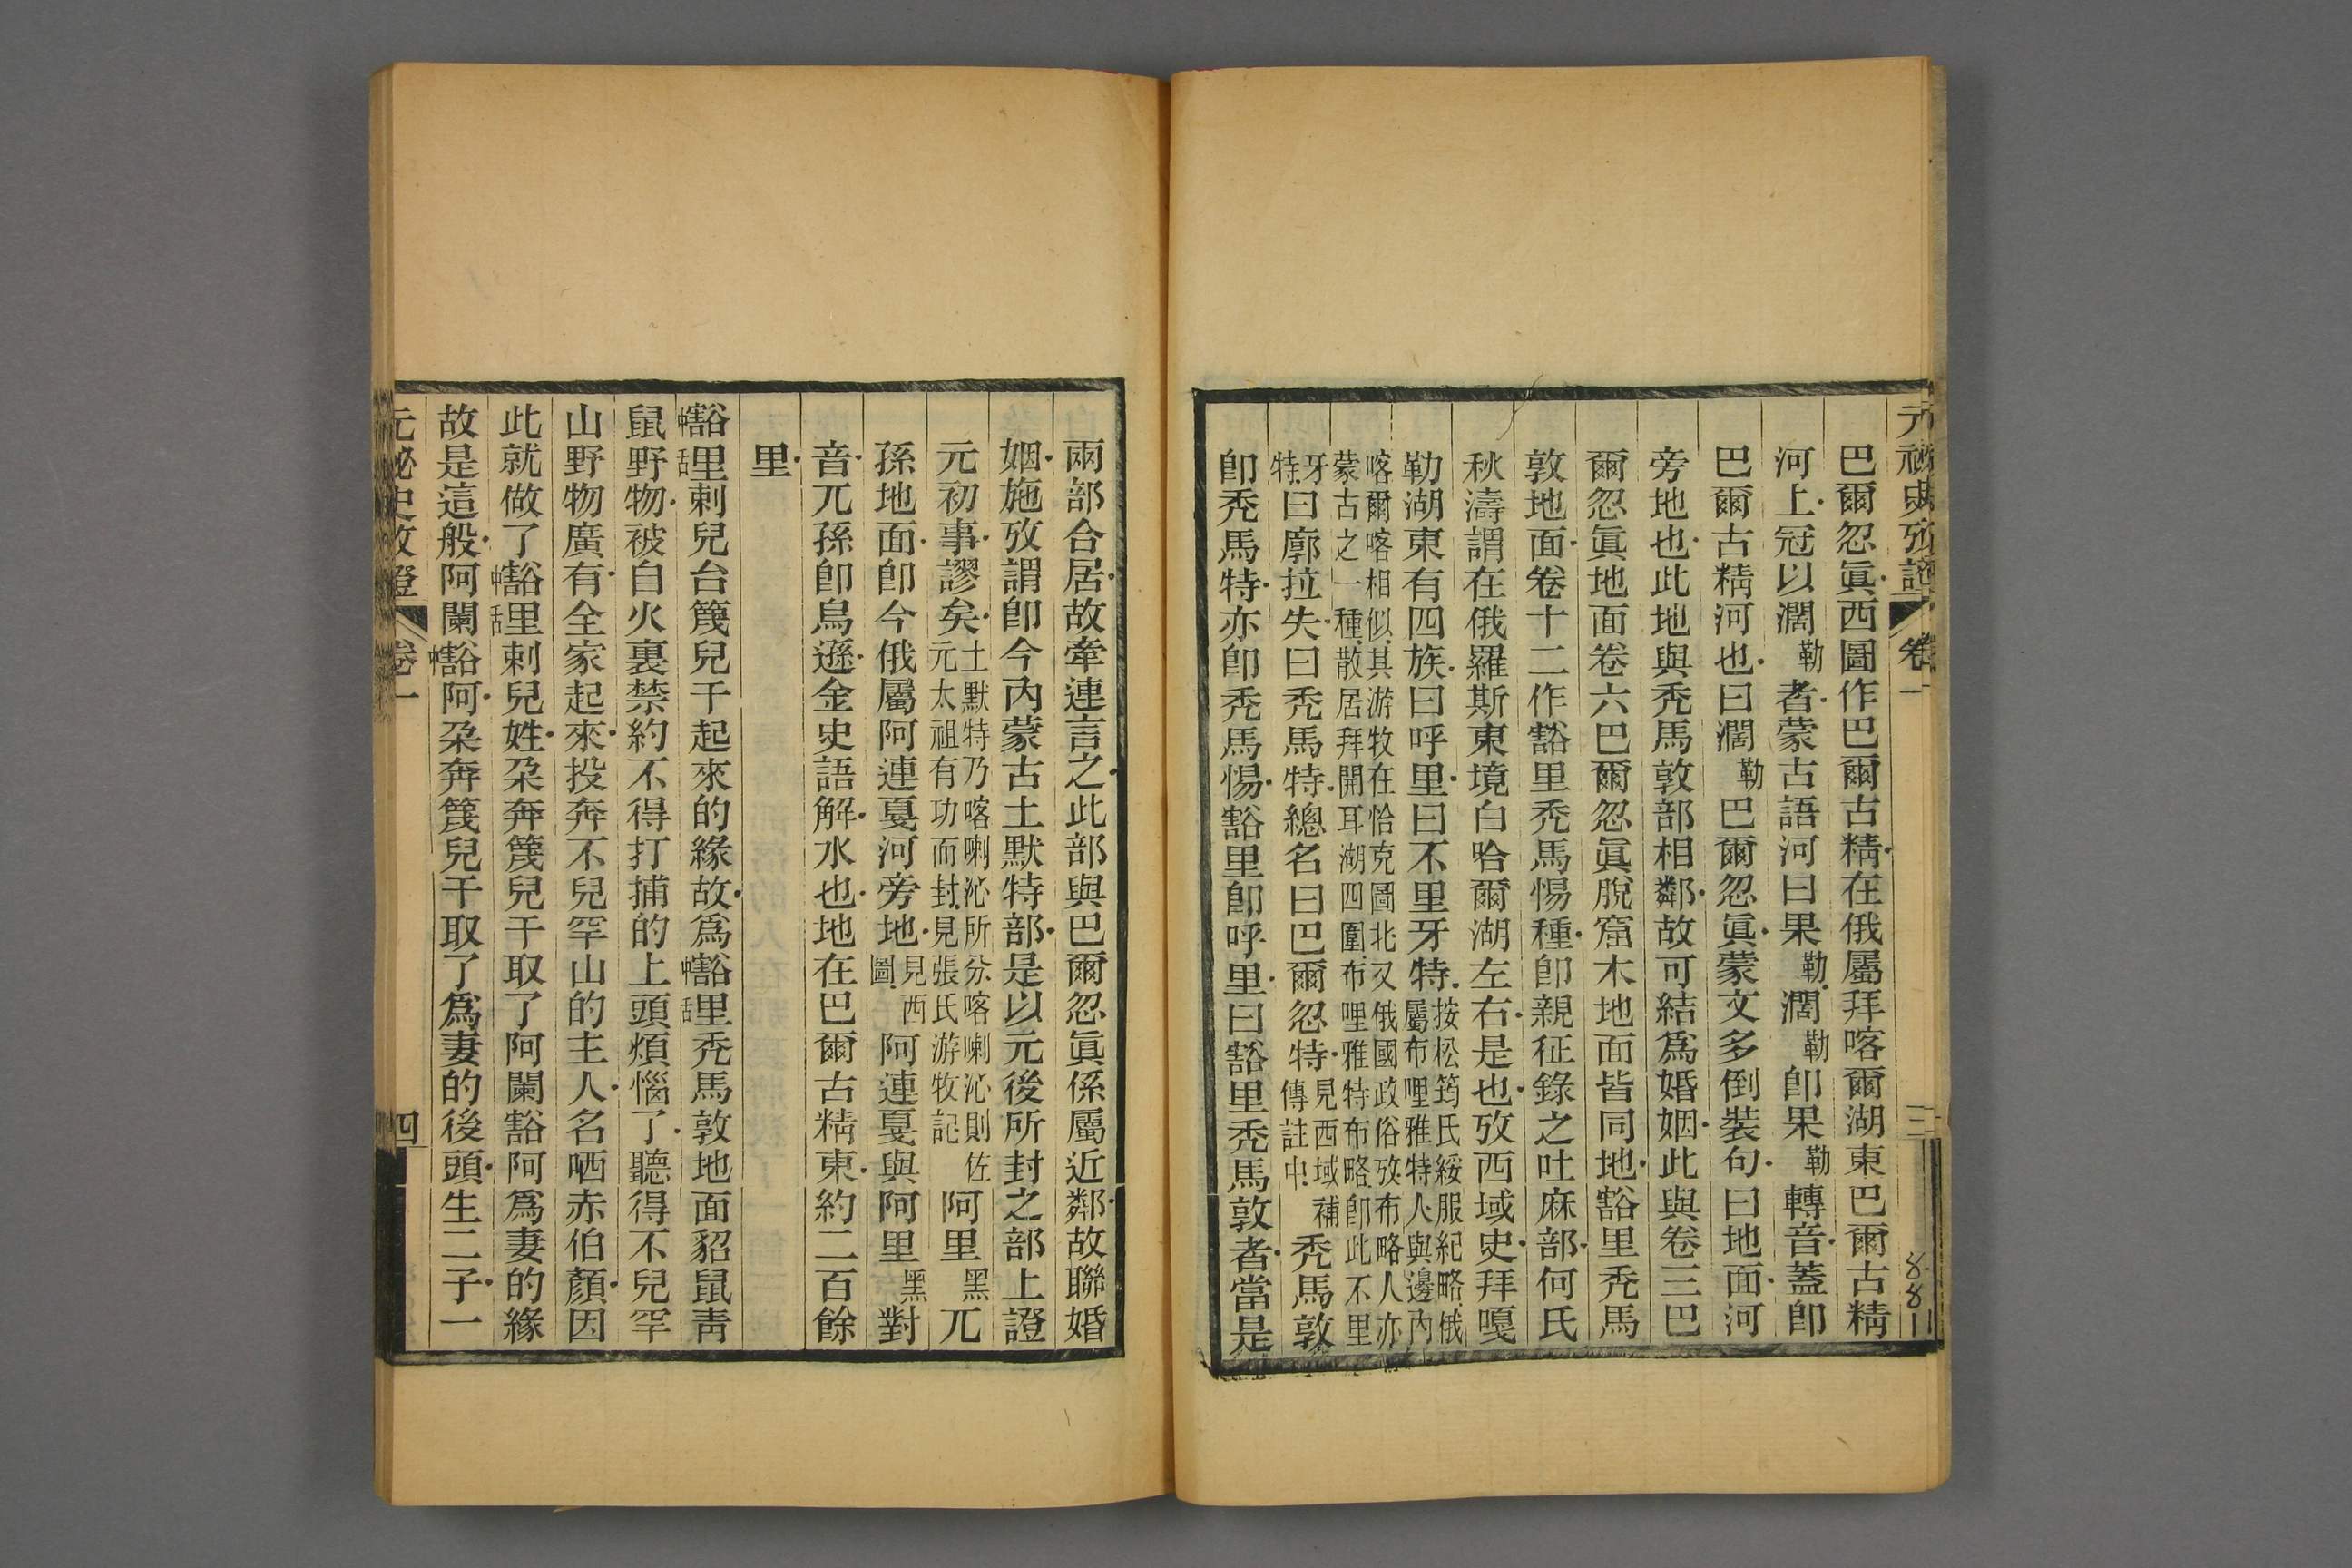 元祕史攷證 卷一 三
881
巴爾忽眞西圖作巴爾古精在俄屬拜喀爾湖東巴爾古精
河上冠以濶勒者蒙古語河曰果勒濶勒卽果勒轉音蓋卽
巴爾古精河也曰濶勒巴爾忽眞蒙文多倒裝句曰地面河
旁地也此地與禿馬敦部相鄰故可結爲婚姻此與卷三巴
爾忽眞地面卷六巴爾忽眞脫窟木地面皆同地豁里禿馬
敦地面卷十二作豁里禿馬惕種卽親征錄之吐麻部何氏
秋濤謂在俄羅斯東境白哈爾湖左右是也攷西域史拜嘎
勒湖東有四族曰呼里曰不里牙特按松筠氏綏服紀略俄屬布哩雅特人與邊內
喀爾喀相似其游牧在恰克圖北又俄國政俗攷布略人亦蒙古之一種散居拜開耳湖四圍布哩雅特布略卽此不里
牙特曰廓拉失曰禿馬特總名曰巴爾忽特見西域補傳註中禿馬敦
卽禿馬特亦卽禿馬惕豁里卽呼里曰豁里禿馬敦者當是
兩部合居故牽連言之此部與巴爾忽眞係屬近鄰故聯婚
姻施攷謂卽今內蒙古土默特部是以元後所封之部上證
元初事謬矣土默特乃喀喇沁所分喀喇沁則佐元太祖有功而封見張氏游牧記阿里黑兀
孫地面卽今俄屬阿連戛河旁地見西圖阿連戛與阿里黑對
音兀孫卽烏遜金史語解水也地在巴爾古精東約二百餘
里
中豁舌里剌兒台篾兒干起來的緣故爲中豁舌里禿馬敦地面貂鼠靑
鼠野物被自火裏禁約不得打捕的上頭煩惱了聽得不兒罕
山野物廣有全家起來投奔不兒罕山的主人名哂赤伯顏因
此就做了中豁舌里剌兒姓朶奔篾兒干取了阿闌豁阿爲妻的緣
故是這般阿闌中豁阿朶奔篾兒干取了爲妻的後頭生二子一
元祕史攷證 卷一 四